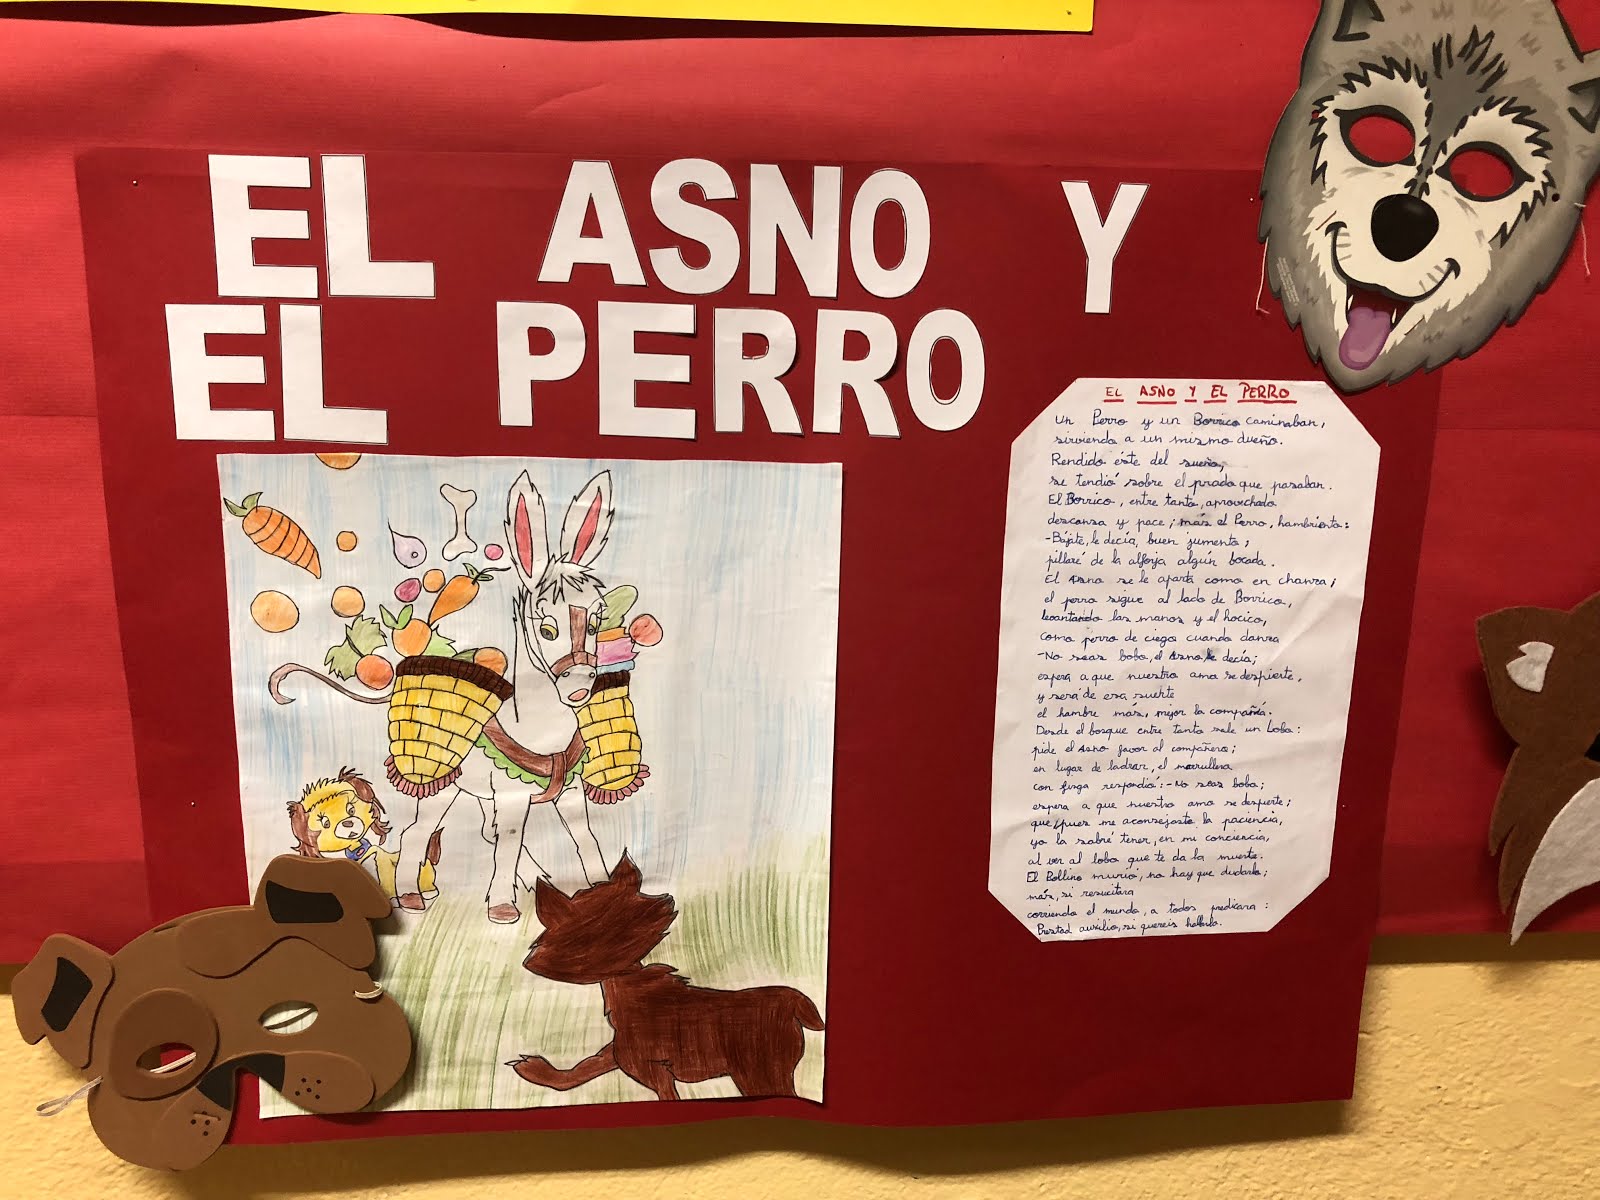 EL ASNO Y
EL PERRO
EL ASNO Y EL PERRO
Un Perro y un Borrico caminaban,
sirviendo a un mismo dueño.
Rendido éste del sueño,
se tendió sobre el prado que pasaban.
El Borrico, entre tanto, aprovechado
descansa y pace; más el Perro, hambriento:
-Bájate, le decía, buen jumento;
pillaré de la alforja algún bocado.
El Asno se le aparta como en chanza;
el perro sigue al lado de Borrico,
levantando las manos y el hocico,
como perro de ciego cuando danza
-No seas bobo, el Asno le decía;
espera a que nuestro amo se despierte,
y será de esa suerte
el hambre más, mejor la compañía.
Desde el bosque entre tanto sale un lobo:
pide el Asno favor al compañero;
en lugar de ladrar, el marrullero
con fisga respondió: -No seas bobo;
espera a que nuestro amo se despierte;
que pues me aconsejaste la paciencia,
yo la sabré tener, en mi conciencia,
al ver al lobo que te da la muerte.
El Pollino murió, no hay que dudarlo;
más, si resucitara
corriendo el mundo, a todos predicara:
Prestad auxilio, si queréis hallarlo.